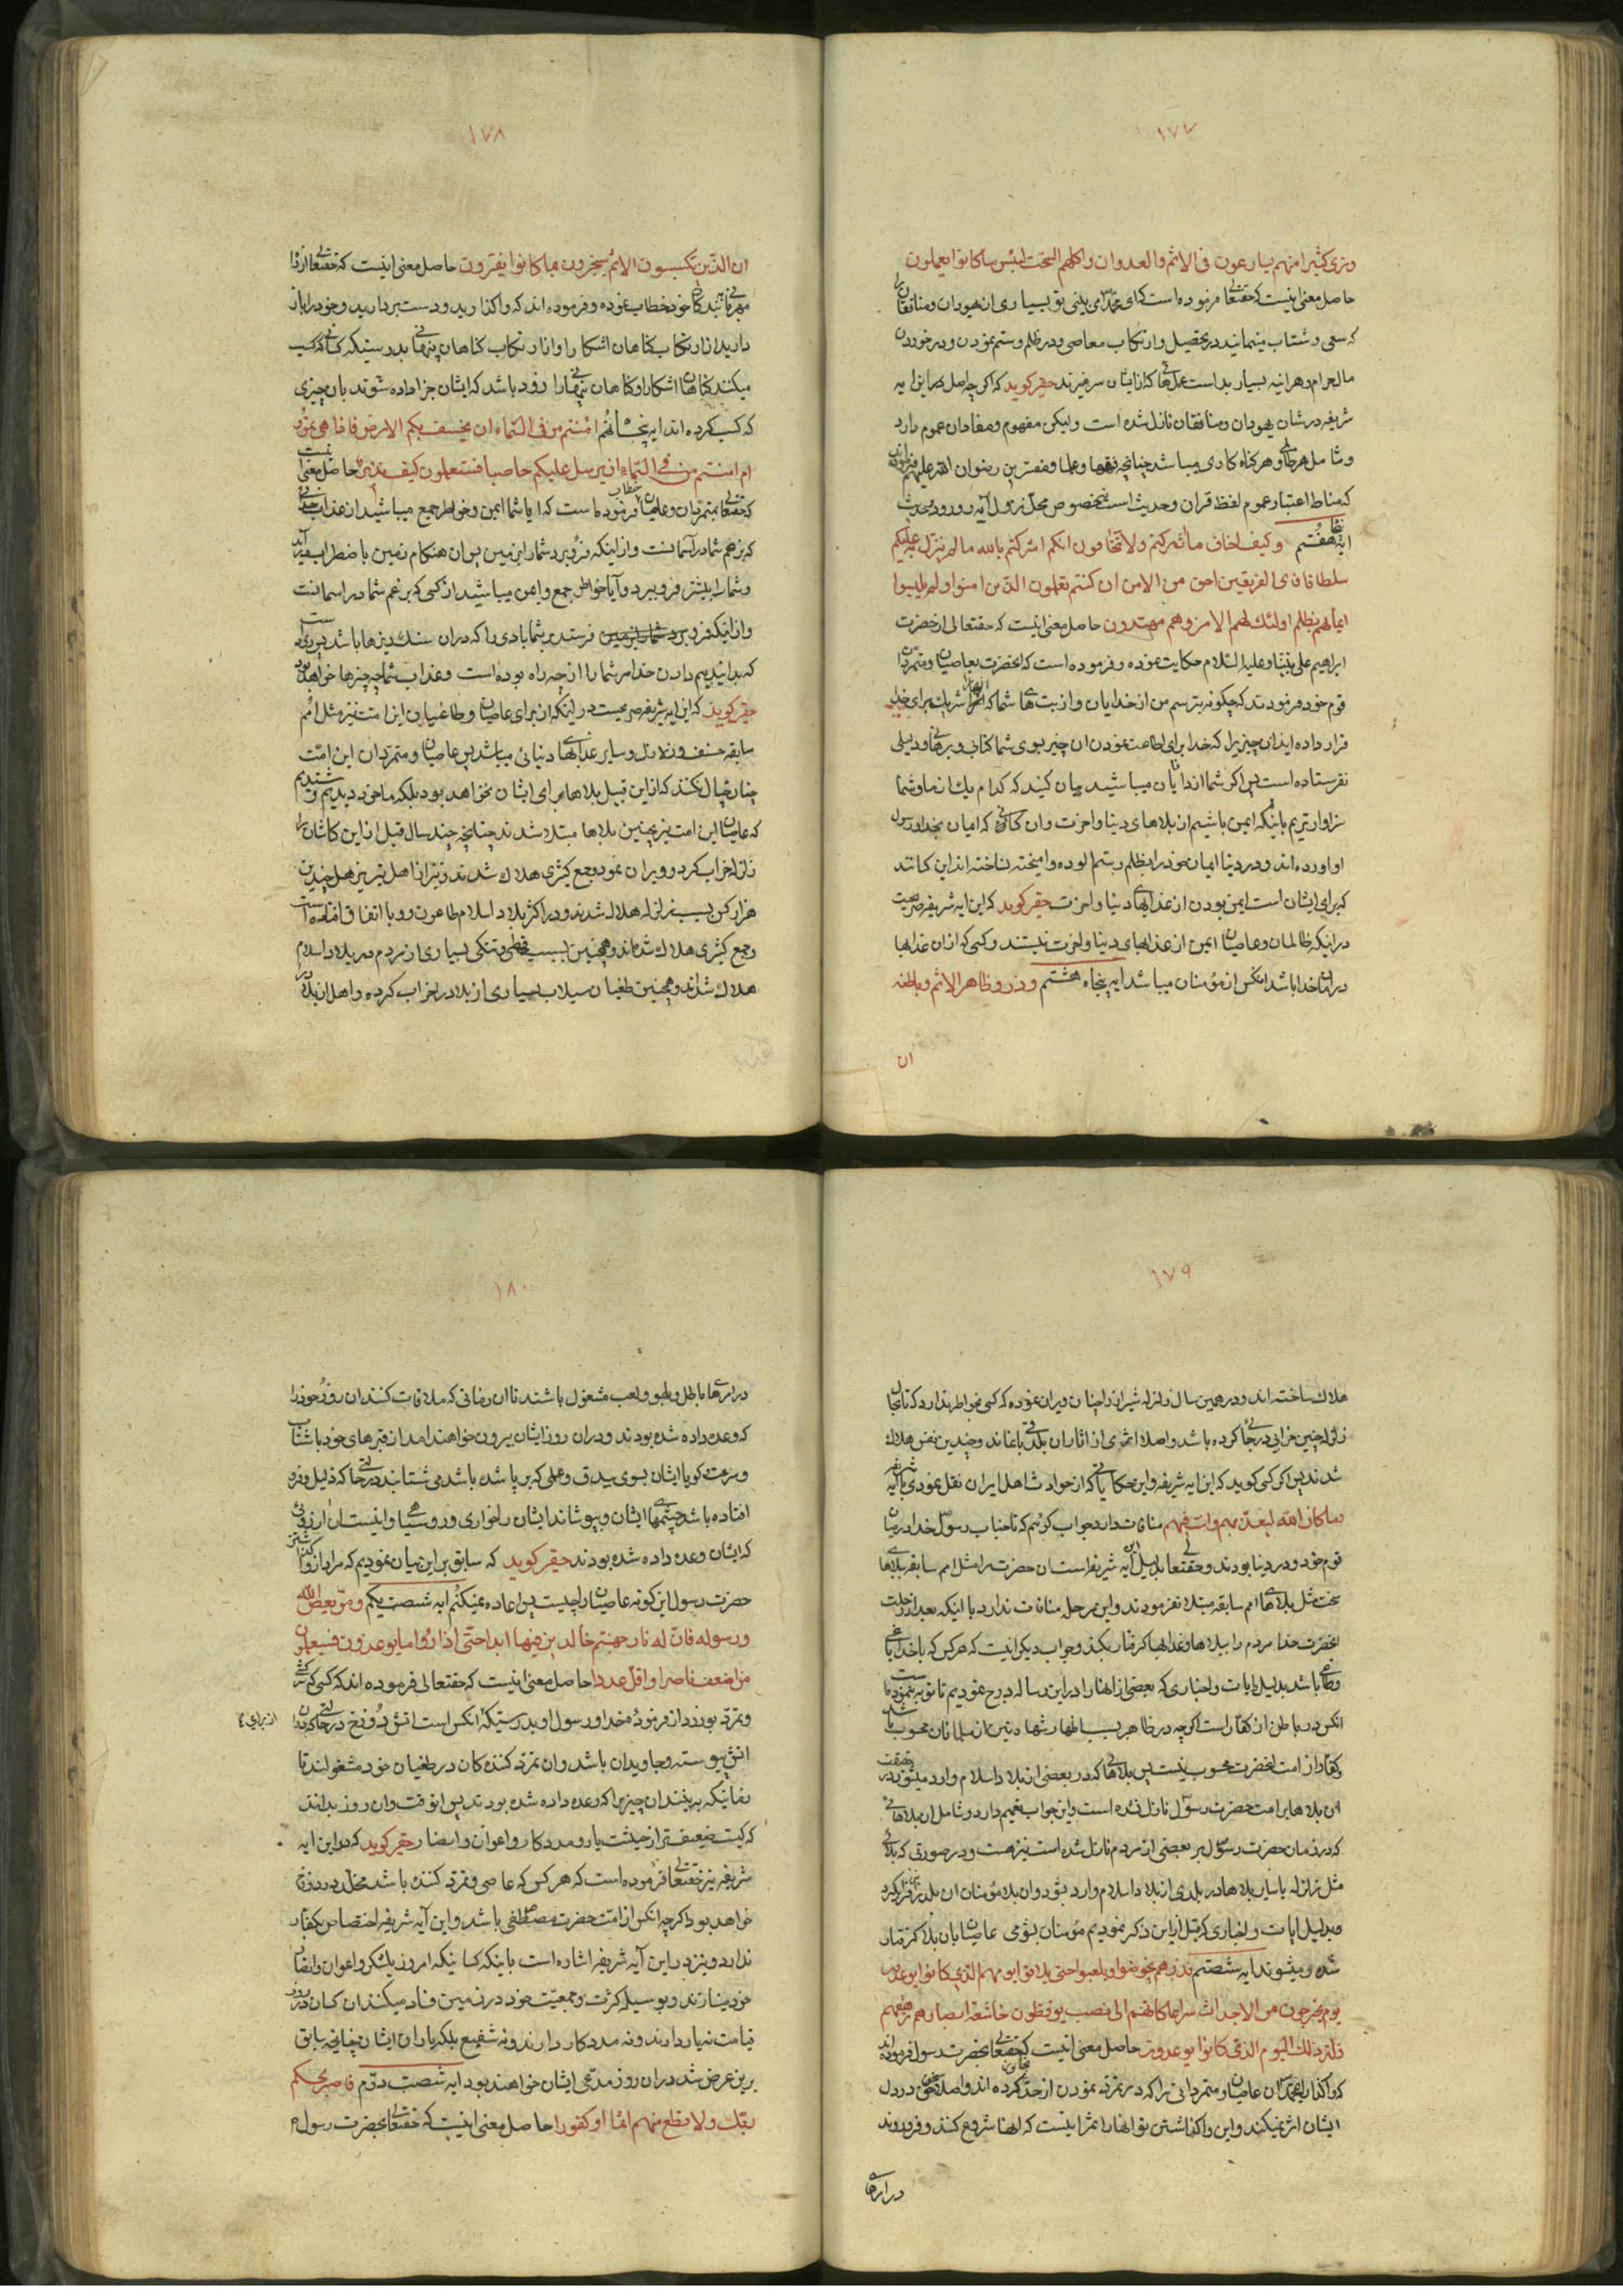 ۱۷۷
وتری کثیرا منهم یسارعون فی الاثم والعدوان واکلهم السحت لبئس ما کانوا یعملون
حاصل معنی اینست که حقتعالی فرموده است که ای محمد می بینی تو بسیاری از یهودان ومنافقان را
که سعی وشتاب مینمایند در تحصیل وارتکاب معاصی ودر ظلم وستم نمودن ودر خوردن
مال حرام وهر اینه بسیار بد است عملهائی که از ایشان سر میزند حقیر کوید که اکر چه اصل این ایه
شریفه در شان یهودان ومنافقان نازل شده است ولیکن مفهوم ومفاد ان عموم دارد
وشامل هر خطا وهر کناه کاری میباشد چنانچه فقها وعلما ومفسرین رضوان الله علیهم فرموده اند
که مناط اعتبار عموم لفظ قران وحدیث است نه خصوص محل نزول آیه وورود حدیث
ایه پنجاه هفتم وکیف اخاف ما اشرکتم ولا تخافون انکم اشرکتم بالله ما لم ینزل به علیکم
سلطانا فای الفریقین احق من الامن ان کنتم تعلمون الذین امنوا ولم یلبسوا
ایمانهم بظلم اولئک لهم الامن وهم مهتدون حاصل معنی اینست که حقتعالی از حضرت
ابراهیم علی نبینا وعلیه السلام حکایت نموده وفرموده است که انحضرت بعاصیان ومتمردان
قوم خود فرمودند که چکونه بترسم من از خدایان واز بت های شما که انها را شریک برای خدا
قرار داده اید از چیزیرا که خدا برای اطاعت نمودن ان چیز بسوی شما کتابی وبرهانی ودلیلی
نفرستاده است پس اکر شما از دانایان میباشید بیان کنید که کدام یک از ما وشما
سزاوارتریم باینکه ایمن باشیم از بلاهای دنیا واخرت وان کسانی که ایمان بخدا ورسول
او اورده اند ودر دنیا ایمان خود را بظلم وستم الوده وامیخته نساخته اند این کسانند
که برای ایشان است ایمن بودن از عذابهای دنیا واخرت حقیر کوید که این ایه شریفه صریحست
در اینکه ظالمان وعاصیان ایمن از عذابهای دنیا واخرت نیستند وکسی که از ان عذابها
در امان خدا باشد انکس از مؤمنان میباشد ایه پنجاه هشتم وذروا ظاهر الاثم وباطنه
ان
۱۷۸
ان الذین یکسبون الاثم سیجزون بما کانوا یقترفون حاصل معنی اینست که حقتعالی از راه
مهربانی به بندکان خود خطاب نموده وفرموده اند که واکذارید ودست بردارید وخود را باز
دارید از ارتکاب کناهان اشکارا واز ارتکاب کناهان پنهانی بدرستیکه کسانی که کسب
میکنند کناهان اشکار وکناهان پنهانی را زود باشد که ایشان جزا داده شوند بان چیزی
که کسب کرده اند ایه پنجاه نهم ءامنتم من فی السماء ان یخسف بکم الارض فاذا هی تمور
ام امنتم من فی السماء ان یرسل علیکم حاصبا فستعلمون کیف نذیر حاصل معنی اینست
که حقتعالی بمتمردان وعاصیان خطاب فرموده است که ایا شما ایمن وخواطر جمع میباشید از عذاب خدائی
که بزعم شما در آسمانست واز اینکه فرو برد شما را بزمین پس ان هنکام زمین باضطراب بیاید
وشما را بیشتر فرو برد وآیا خواطر جمع وایمن میباشید از کسی که بزعم شما در اسمانست
واز اینکه فرستد بر شما بادی را که در ان سنک ریزها باشد پس زود است
که بدانید بیم دادن خدا مر شما را از چه راه بوده است وعذاب شما چه چیزها خواهد بود
حقیر کوید که این ایه شریفه صریحست در اینکه از برای عاصیان وطاغیان این امت نیز مثل امم
سابقه خسف وزلازل وسایر عذابهای دنیائی میباشد پس عاصیان ومتمردان این امت
چنان خیال نکنند که از این قبیل بلاها برای ایشان نخواهد بود بلکه ما خود دیدیم وشنیدیم
که عاصیان این امت نیز بچنین بلاها مبتلا شدند چنانچه چند سال قبل از این کاشان را
زلزله خراب کرد وویران نمود وجمع کثیری هلاک شدند ونیز از اهل تبریز هم چندین
هزار کس بسبب زلزله هلاک شدند ودر اکثر بلاد اسلام طاعون ووبا اتفاق افتاده است
وجمع کثیری هلاک شده اند وهمچنین بسبب قحطی وتنکی بسیاری از مردم در بلاد اسلام
هلاک شده اند وهمچنین طغیان سیلاب بسیاری از بلاد را خراب کرده واهل ان بلاد را
۱۷۹
هلاک ساخته اند ودر همین سال زلزله شیراز را چنان ویران نموده که کسی بخواطر ندارد که تا بحال
زلزله چنین خرابی در جائی کرده باشد واصلا اثری از اثار ان بلد باقی نماند وچندین نفس هلاک
شدند پس اکر کسی کوید که این ایه شریفه واین حکایاتی که از حوادث اهل ایران نقل نمودی با آیه شریفه
وما کان الله لیعذبهم وانت فیهم منافات دارد جواب کوئیم که تا جناب رسول خدا در میان
قوم خود ودر دنیا بودند وحقتعالی بدلیل این آیه شریفه امت ان حضرت را مثل امم سابقه ببلاهای
سخت مثل بلاهای امم سابقه مبتلا نفرمودند واین مرحله منافات ندارد با اینکه بعد از رحلت
انحضرت خدا مردم را ببلاها وعذابها کرفتار بکند وجواب دیکر اینست که هر کس که با خدا یاغی
وطاغی باشد بدلیل ایات واخباری که بعضی از انها را در این رساله درج نمودیم تا توبه ننموده است
انکس در باطن از کفار است اکر چه در ظاهر بسبب اظهار شهادتین از مسلمانان محسوب باشد
وکفار از امت انحضرت محسوب نیست پس بلاهائی که در بعضی از بلاد اسلام وارد میشود در حقیقت
ان بلاها بر امت حضرت رسول نازل نشده است واین جواب تعمیم دارد وشامل ان بلاهائی
که در زمان حضرت رسول بر بعضی از مردم نازل شده است نیز هست ودر صورتی که بلائی
مثل زلزله یا سایر بلاها در بلدی از بلاد اسلام وارد بشود وان بلا مؤمنان ان بلد را نیز فرا کیرد
بدلیل ایات واخباری که قبل از این ذکر نمودیم مؤمنان بشومی عاصیان بان بلا کرفتار
شده ومیشوند ایه شصتم فذرهم یخوضوا ویلعبوا حتی یلاقوا یومهم الذی کانوا یوعدون
یوم یخرجون من الاجداث سراعا کانهم الی نصب یوفضون خاشعة ابصارهم ترهقهم
ذلة ذلک الیوم الذی کانوا یوعدون حاصل معنی اینست که حقتعالی بحضرت رسول فرموده اند
که واکذار ای محمد ان عاصیان ومتمردانی را که در تمرد نمودن از حد تجاوز کرده اند واصلا سخن حق در دل
ایشان اثر نمیکند واین واکذاشتن تو انها را ثمرا اینست که انها شروع کنند وفرو روند
در امرهای
۱۸۰
در امرهای باطل وبلهو ولعب مشغول باشند تا ان زمانی که ملاقات کنند ان روز خود را
که وعده داده شده بودند ودر ان روز ایشان بیرون خواهند امد از قبرهای خود با شتاب
وسرعت کویا ایشان بسوی بیدق وعلمی که بر پا شده باشد می شتابند در حالتی که ذلیل وفرو
افتاده باشد چشمهای ایشان وبپوشاند ایشان را خواری وروسیاهی واینست ان روزی
که ایشان وعده داده شده بودند حقیر کوید که سابق بر این بیان نمودیم که مراد از واکذاشتن
حضرت رسول این کونه عاصیان را چیست پس اعاده نمیکنم ایه شصت یکم ومن یعص الله
ورسوله فان له نار جهنم خالدین فیها ابدا حتی اذا راوا ما یوعدون فسیعلمون
من اضعف ناصرا واقل عددا حاصل معنی اینست که حقتعالی فرموده اند که کسی که سرکشی
وتمرد بورزد از فرموده خدا ورسول او بدرستیکه انکس است اتش دوزخ در حالتی که در ان
اتش پیوسته وجاویدان باشد وان تمرد کننده کان در طغیان خود مشغولند تا
زمانیکه به بینند ان چیزیرا که وعده داده شده بودند پس انوقت وان روز بدانند
که کیست ضعیف تر از حیثیت یار ومددکار واعوان وانصار حقیر کوید که در این ایه
شریفه نیز حقتعالی فرموده است که هر کس که عاصی وتمرد کننده باشد مخلد در دوزخ
خواهد بود اکر چه انکس از امت حضرت مصطفی باشد واین آیه شریفه اختصاص بکفار
ندارد ونیز در این آیه شریفه اشاره است باینکه کسانیکه امروز بلشکر واعوان وانصار
خود مینازند وبوسیله کثرت وجمعیت خود در زمین فساد میکنند ان کسان در روز
قیامت نه یار دارند ونه مددکار دارند ونه شفیع بلکه یاران ایشان چنانچه سابق
بر این عرض شد در ان روز مدعی ایشان خواهند بود ایه شصت دوم فاصبر لحکم
ربک ولا تطع منهم اثما او کفورا حاصل معنی اینست که حقتعالی بحضرت رسول